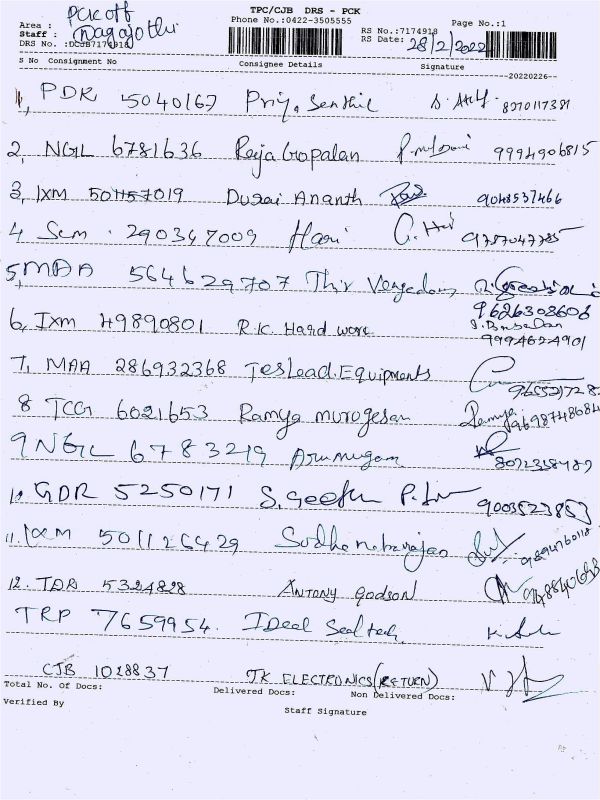 TPC/CJB DRS - PCK
Area : PCK off
Phone No.:0422-3505555
Page No.:1
Staff : Nagajothi
RS No.:7174918
DRS No. :DCJB7174918
RS Date: 28/2/2022
S No Consignment No Consignee Details Signature
20220226
1, PDR 5040167 Priya Senthil 8270117381
2, NGL 6781636 Raja Gopalan 9994906815
3, IXM 501157019 Durai Ananth 9048537466
4 Scm 290347009 Hari G. Hari 9787047785
5, MAA 564629707 Thir Vengadam
9626303606
6, IXM 49890801 R.K. Hard wore
9994624901
7, MAA 286932368 Teslead. Equipments
8 TCG 6021653 Ramya murugesan Ramya 9698748684
9 NGL 6783219 Arumugam 8072358489
10 GDR 5250171 S. Geetha 9003523853
11. IXM 501126429 Sudha natarajan
12. TDR 5324828 Antony Godson
TRP 7659954. Ideal Sealtech.
CJB 1028837 JK ELECTRONICS (RETURN)
Total No. of Docs: Delivered Docs: Non Delivered Docs:
Verified By
Staff Signature